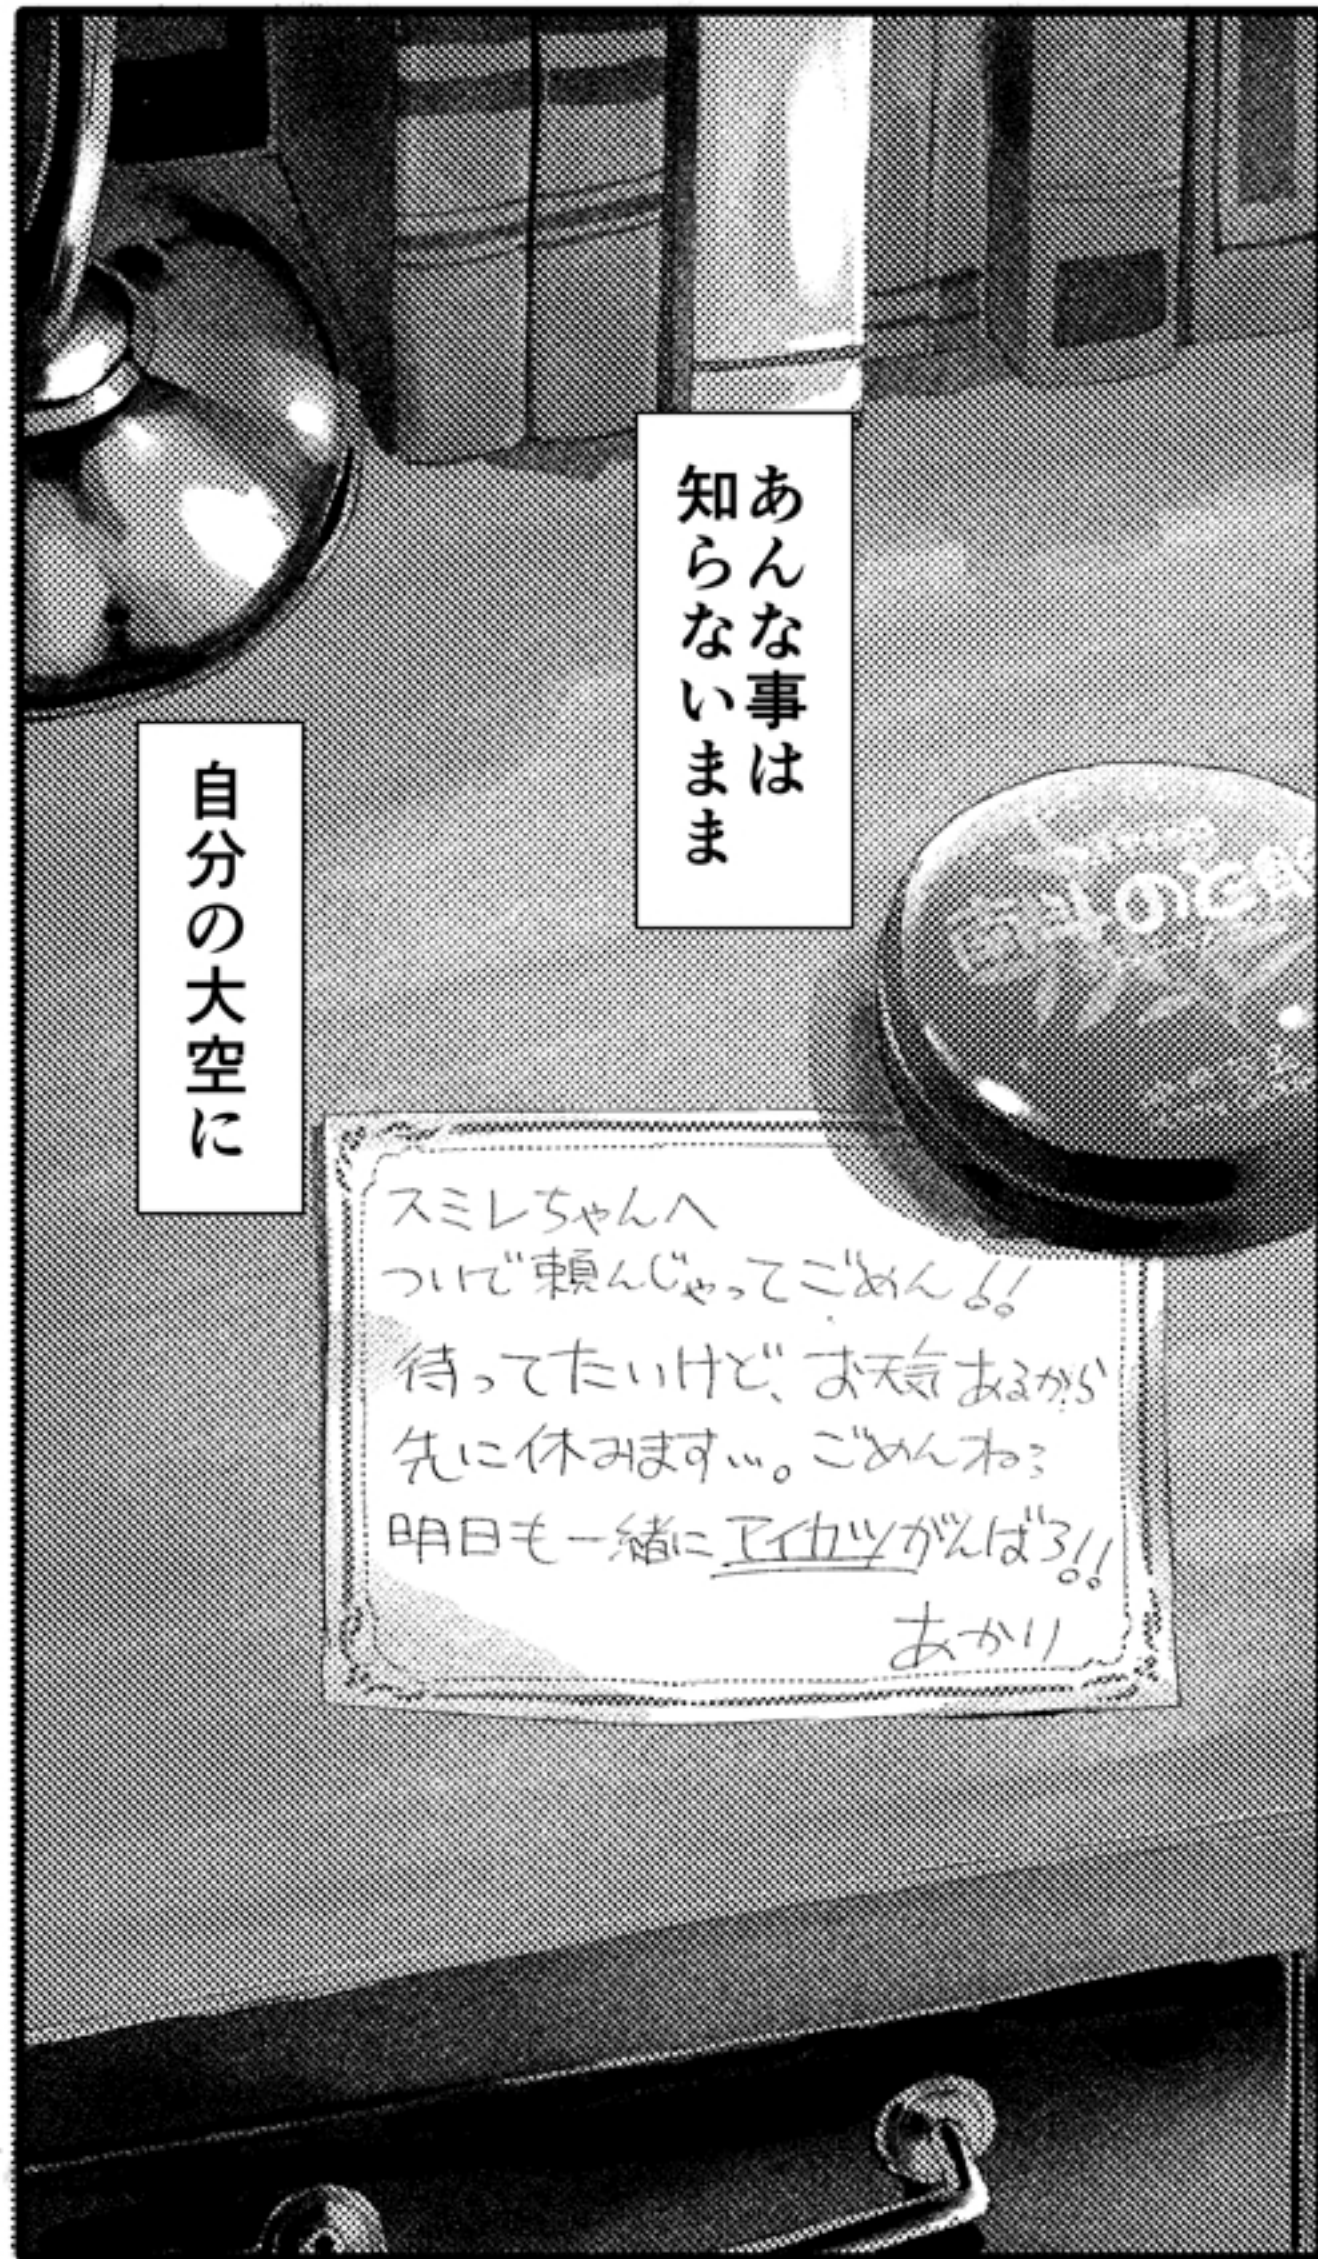 あんな事は
知らないまま
自分の大空に
のど飴
スミレちゃんへ
ついで頼んじゃってごめん!!
待ってたいけど、お天気あるから
先に休みます…。ごめんね:
明日も一緒にアイカツがんばろ!!
あかり